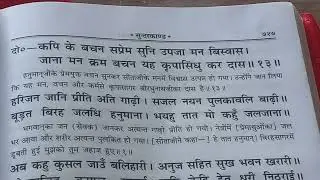 सुन्दरकाण्ड
७२७
दो०– कपि के बचन सप्रेम सुनि उपजा मन बिस्वास।
जाना मन क्रम बचन यह कृपासिंधु कर दास॥१३॥
हनुमान्‌जीके प्रेमयुक्त वचन सुनकर सीताजीके मनमें विश्वास उत्पन्न हो गया। उन्होंने जान लिया
कि यह मन, वचन और कर्मसे कृपासागर श्रीरघुनाथजीका दास है॥१३॥
हरिजन जानि प्रीति अति गाढ़ी। सजल नयन पुलकावलि बाढ़ी॥
बूड़त बिरह जलधि हनुमाना। भयहु तात मो कहुँ जलजाना॥
भगवान्‌का जन (सेवक) जानकर अत्यन्त गाढ़ी प्रीति हो गयी। नेत्रोंमें
भर आया और शरीर अत्यन्त पुलकित हो गया। [सीताजीने कहा—] हे तात हनुमान्! विरहसागरमें
डूबती हुई मुझको तुम जहाज हुए॥१॥
अब कहु कुसल जाउँ बलिहारी। अनुज सहित सुख भवन खरारी॥
केहि हेतु धरी निठुराई॥